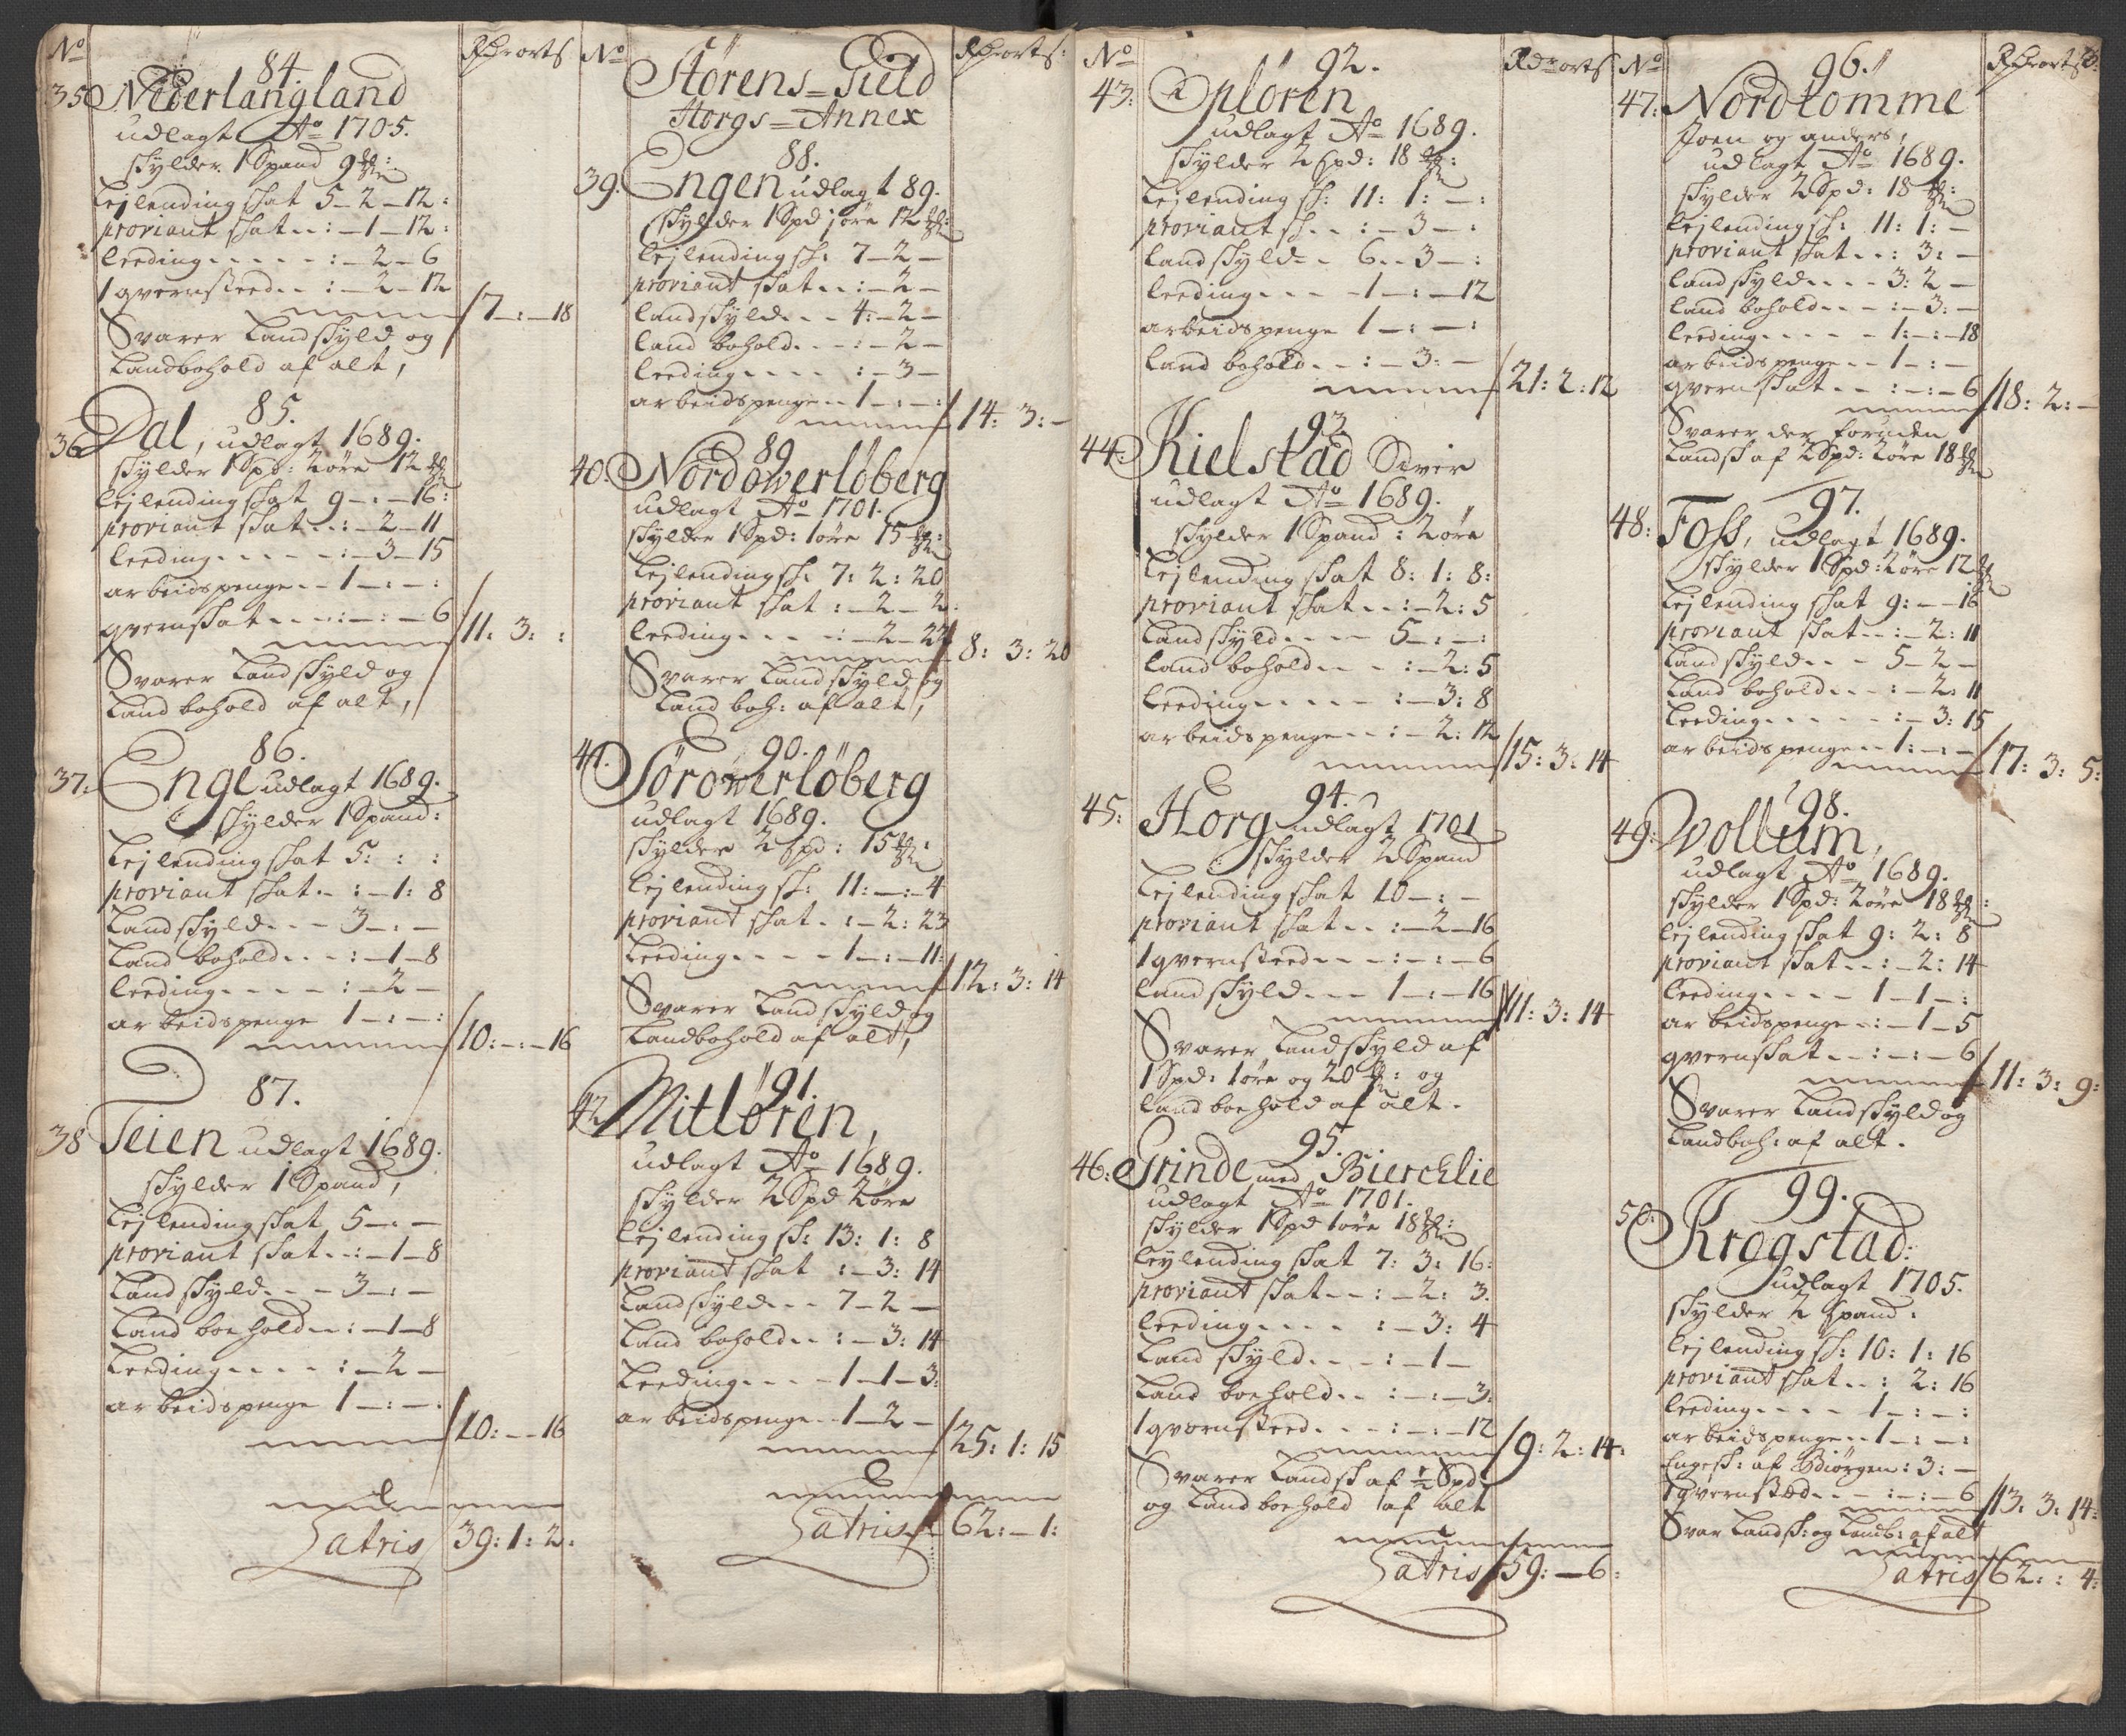 No
Rdr orts
84.
35 Nederlangland
udlagt Ao 1705.
skylder 1 Spand 9
Lejlending skat 5-2-12:
proviant skat..:-1-12:
leeding.....:-2-6
1 qvernsteed..:-2-12
7-:-18
Svarer Landskyld og
Landbohold af alt,
85.
36 Dal, udlagt 1689.
skylder 1 Spd: 2 øre 12
lejlending skat 9-:-16:
proviant skat..:-2-11
leeding.....:-3-15
arbeidspenge..1-:-:
qvernskat...:-:-6
11: 3: :
Svarer Landskyld og
Land bohold af alt,
86.
37: Enge udlagt 1689.
skylder 1 Spand:
Lejlending skat 5: : :
proviant skat..:-1: 8
Landskyld...3-:-
Land bohold...:-1-8
leeding....:-2-
arbeidspenge 1-:-:
10:-:-16
87.
38 Teien udlagt 1689.
skylder 1 Spand,
Lejlending skat 5-:-
proviant skat..:-1-8
Landskyld...3-:-
Land boehold..:-1-8
Leeding....:-2-
arbeidspenge 1-:-:
10:--16
Latris 39: 1: 2:
No
Rdr orts:
Størens=Gield
Horgs=Annex
88.
39. Engen udlagt 89.
skylder 1 Spd 1 øre 12
Lejlending sk: 7-2-
proviant skat..:-2-
landskyld...4:-2-
land bohold...:-2-
leeding....:-3-
arbeidspenge..1-:-:
14: 3:-
89
40. Nordowerløberg
udlagt Ao 1701.
skylder 1 Spd: 1 øre 15
Lejlending sk: 7: 2: 20
proviant skat :-2-2:
leeding....:-2-22
8: 3: 20
Svarer Landskyld og
Land boh: af alt,
90.
41. Sørowerløberg
udlagt 1689.
skylder 2 spd: 15
Lejlending sk: 11:-:-4
proviant skat.:-2: 23
Leeding....1-:-11:
12: 3: 14
Svarer Landskyld og
Landbohold af alt,
91.
42 Mitløren,
udlagt Ao 1689.
skylder 2 Spd 2 øre
Lejlending sk: 13: 1: 8
proviant skat :-3: 14
Landskyld...7-2-
Land bohold..:-3: 14
Leeding....1-1-3:
arbeidspenge..1-2-
25: 1: 15
Latris 62:-1:
No
Rdr orts
92.
43: Opløren
udlagt Ao 1689.
skylder 2 spd: 18
Lejlending sk: 11: 1:-:
proviant sk...:-3-:
Landskyld..6..3-:
leeding...-1-:-12
arbeidspenge 1-:-:
land bohold..:-3:-
21: 2: 12
93
44: Kielstad Siver
udlagt Ao 1689.
skylder 1 Spand: 2 øre
Lejlending skat 8: 1: 8:
proviant skat..:-2: 5
Landskyld....5-:-:
land bohold...:-2: 5
leeding.....:-3: 8
arbeidspenge..:-2: 12
15: 3: 14
94.
45: Horg udlagt 1701
skylder 2 Spand
Lejlending skat 10-:-
proviant skat..:-2-16
1 qvernsteed...:-:-6
landskyld...1-:-16
11: 3: 14
Svarer Landskyld af
1 Spd: 1 øre og 20 : og
land boehold af alt.
95.
46: Grinde med Bierchlie
udlagt Ao 1701.
skylder 1 Spd 1 øre 18
Leylending skat 7: 3: 16:
proviant skat..:-2: 3.
leeding....:-3: 4
Land skyld...:-1-
Land boehold..:-:-3:
1 qvernsteed...:-:-12
9: 2: 14:
Svarer Landsk af ½ Spd
og Land boehold af alt
Latris 59:-6:
No
Rdr orts
96.
47: Nordtomme
Joen og anders,
udlagt Ao 1689.
skylder 2 Spd: 18
Lejlending sk: 11: 1:-
proviant skat..: 3:-
Landskyld....3: 2-
Land bohold...:-3:-
leeding.....1:-:-18
arbeidspenge..1-:-
qvernskat...:-:-6
18: 2:-
Svarer der foruden
Landsk af 2 Spd: 2 øre 18
97.
48: Foss, udlagt 1689.
skylder 1 Spd: 2 øre 12
Lejlending skat 9:--16
proviant skat..:-2: 11
Landskyld...5-2-
Land bohold...:-2: 11
Leeding.....:-3: 15
arbeidspenge..1:-:-
17: 3: 5:
98.
49: Wollum,
udlagt Ao 1689.
skylder 1 Spd: 2 øre 18
lejlending skat 9: 2: 8
proviant skat..:-2: 14
leeding....1-1-:
arbeidspenge..:-1-5
qvernskat..:-:-6
11: 3: 9:
Svarer Landskyld og
Landboh: af alt.
99.
50: Krogstad:
udlagt 1705.
skylder 2 spand:
Lejlending sk: 10: 1: 16
proviant skat..: 2: 16
leeding....1-:-:
arbeidspenge..1-:-:
Engesk: af Biørgen: 3:-
1 qvernsted...:-:-6
13: 3: 14:
Svar Landsk: og Landb: af alt
Latris 62: : 4: